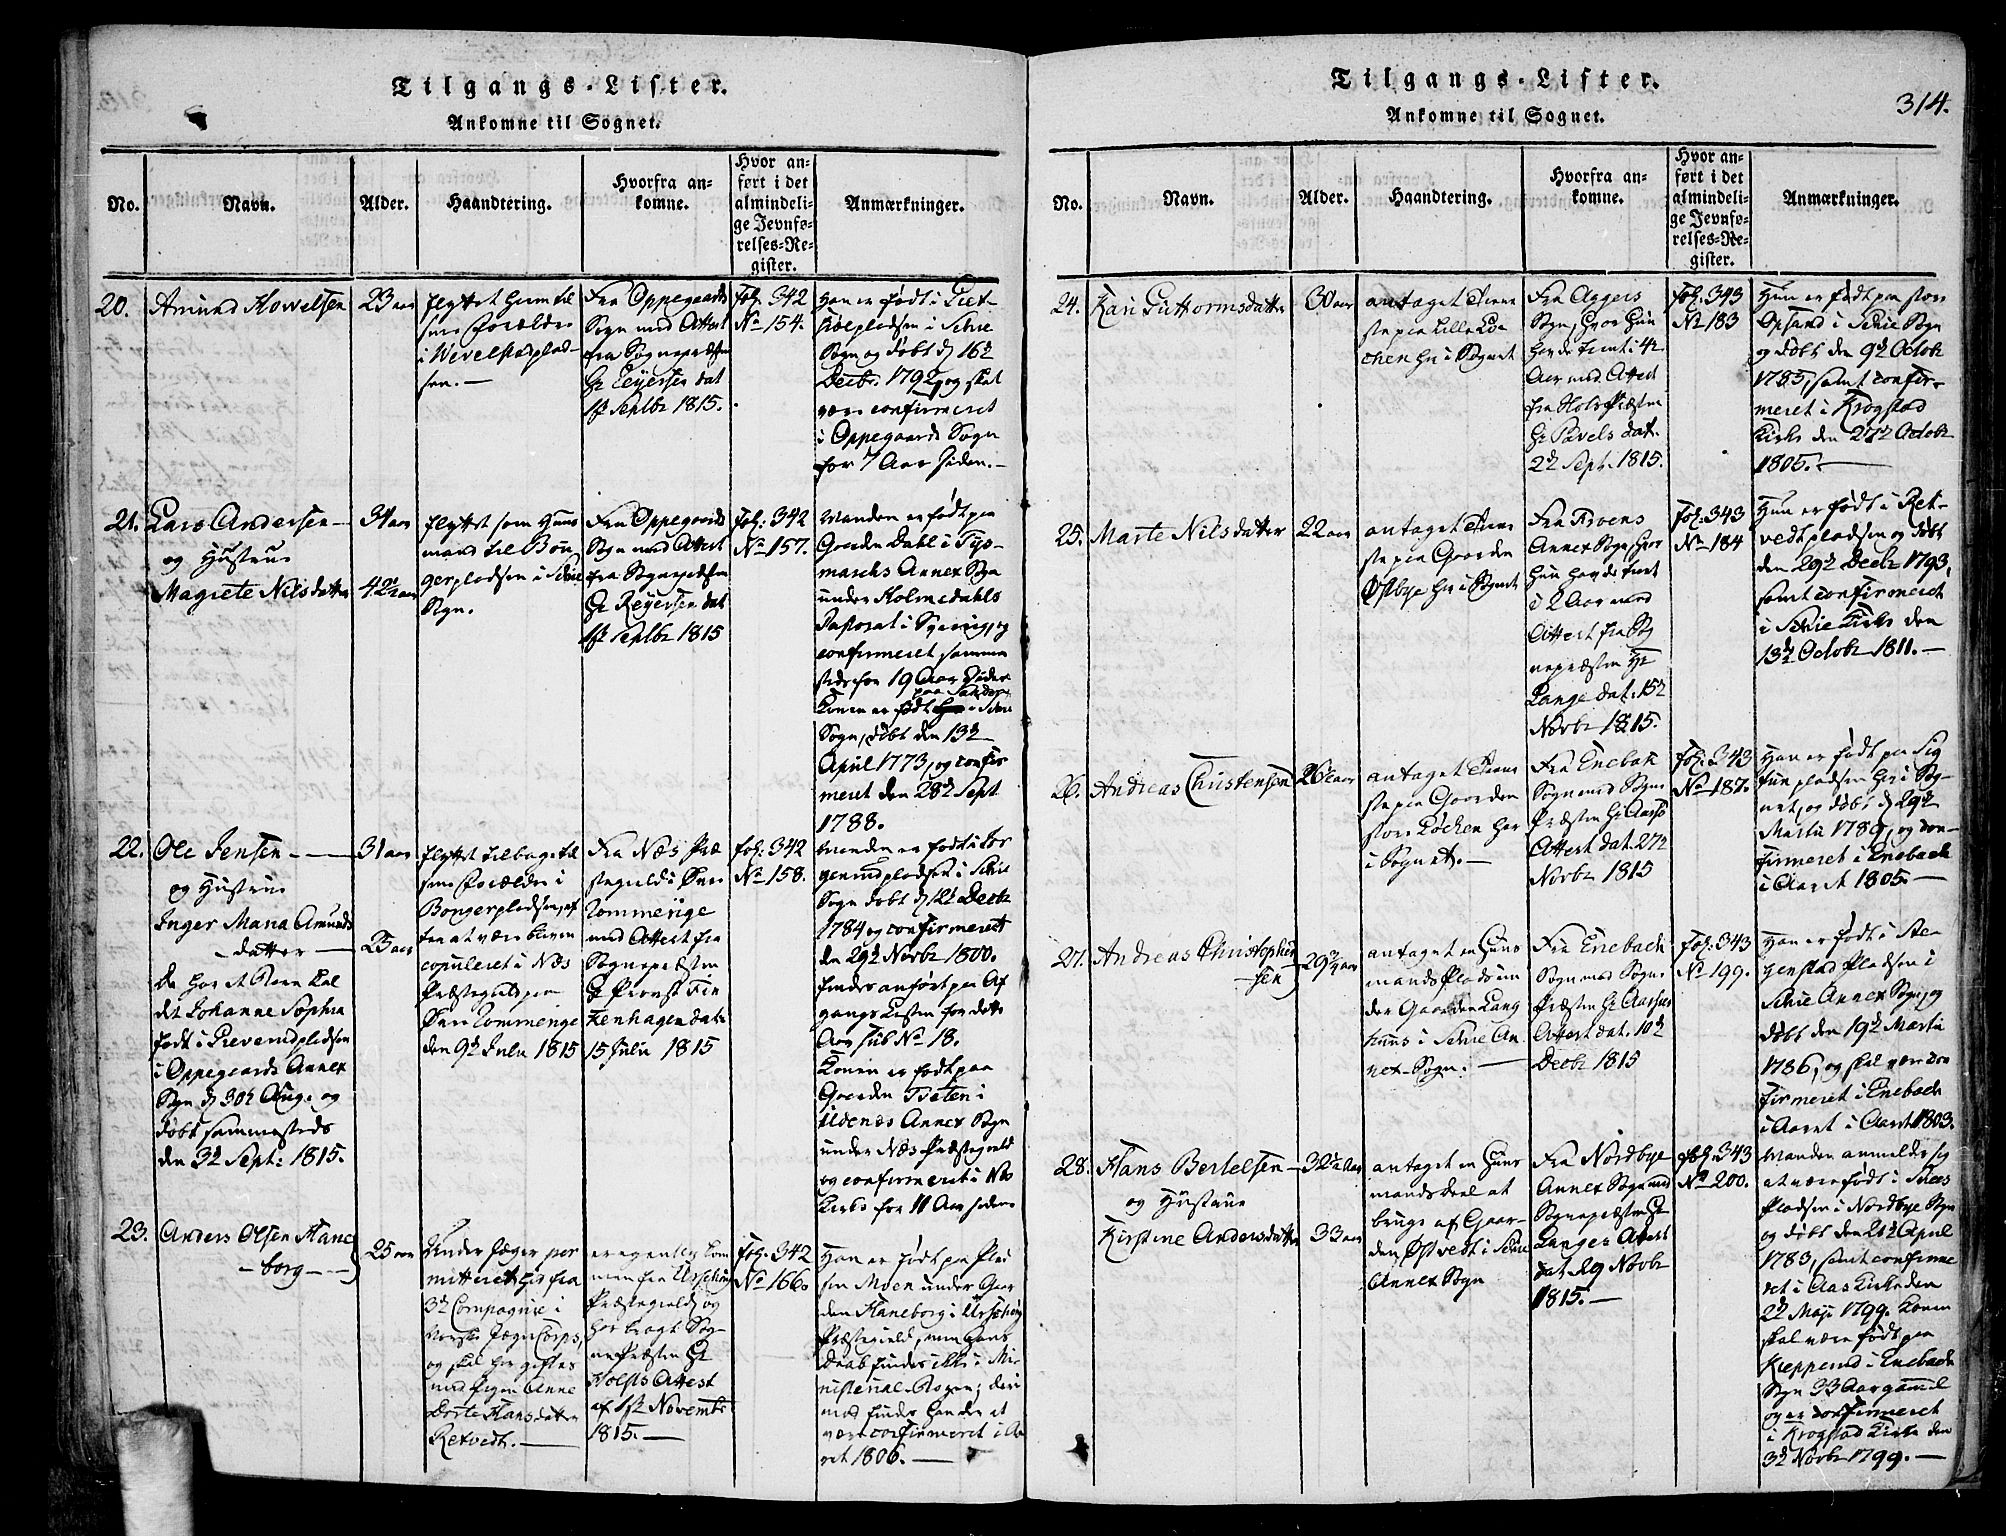 Tilgangs-Lister.
Ankomne til Sognet.
No.
Navn.
Alder.
Haandtering.
Hvorfra an-
komne.
Hvor an-
ført i det
almindeli-
ge Jevnfø-
relses-Re-
gister.
Anmærkninger.
20.
Amund
23 aar
flyttet hiem til
sine Forældre
i
sen.-
Fra Oppegaards
Sogn med Attest
fra Sognepræsten
Hr dat
1ste Septbr 1815.
Fol: 342
No 154.
Han er født i
pladsen i Schie
Sogn og døbt d 16de
Decbr. 1792, og skal
være confirmeret
i Oppegaards Sogn
for 7 Aar siden.-
21.
Lars Andersen-
og Hustrue
Magrete Nilsdatter
34 aar
42 aar
flyttet som Huus
mand til
gerpladsen i Schie
Sogn.
Fra Oppegaards
Sogn med Attest
fra Sognepræsten
Hr Reyersen dat
1ste Septbr 1815
Fol: 342
No 157.
Manden er født paa
Gaarden Dahl i
marchs Annex Sogn
under Holmedahls
Pastorat i Sverrig, og
confirmeret samme
steds for 19 Aar siden
paa
Konen er født i Schie
Sogn, døbt den 13de
April 1773, og confir
meret den 28de Sept
1788.
22.
Ole Jensen
og Hustrue
Inger Maria Amunds
datter
De har et Barn kal
det Johanne Sophia
født i Prevenudpladsen
i Oppegaards Annex
Sogn d 30te Aug. og
døbt sammesteds
den 3de Sept: 1815.
31 aar
25 aar
flyttet tilbage til
sine Forældre i
Bongerpladsen, ef
ter at være bleven
copuleret i Næs
Præstegield paa
Øvre Rommerige
den 9de Julii 1815
Fra Næs Præ
stegield i Øvre
Rommerige
med Attest fra
Sognepræsten
Hr Provst Fin
kenhagen dat:
15 Julii 1815
Fol: 342
No 158.
Manden er født i
pladsen i Schie
Sogn døbt d 12te Decbr
1784 og confirmeret
den 29de Novbr 1800.
findes anført paa Af
gangs Listen for dette
Aar sub No 18.
Konen er født paa
Gaarden i
Udenæs Annex Sogn
under Næs Præstegield
og confirmeret i Næs
Kirke for 11 Aar siden
23.
Anders Olsen Hane
- borg -
25 aar
Under Jæger per
mitteret her fra
3de Compagnie i
Norske Jæger Corps,
og skal her giftes
med Pigen Anne
Dorte Hansdatter
Retvedt.-
er egentlig kom
men fra Urschoug
Præstegield, og
har bragt Sog-
nePræsten Hr
Attest
af 1ste November
1815.-
Fol: 342
No 166.
Han er født paa Plad
sen Moen under Gaar
den Haneborg i Urschoug
Præstegield, men hans
Daab findes ikke i Mi-
nisterial-Bogen; deri
mod findes han der at
være confirmeret i Aa
ret 1806.-
Tilgangs-Lister.
Ankomne til Sognet.
314.
No.
Navn.
Alder.
Haandtering.
Hvorfra an-
komne.
Hvor an-
ført i det
almindeli-
ge Jevnfø-
relses-Re-
gister.
Anmærkninger.
24.
Kari Guttormsdatter
30 aar
antaget Tiene
ste paa Lille Lø
chen her i Sognet
Fra Aggers
Sogn, hvor hun
havde tient i 4re
Aar med Attest
fra HolsPræsten
Hr Pavels dat.
22de Sept. 1815.
Fol: 343
No 183
Hun er født paa store
Opsand i Schie Sogn
og døbt den 9de Octobr
1785, samt confir-
meret i Krogstad
Kirke den 27de Octobr
1805.-
25.
Marte Nilsdatter
22 aar
antaget Tiene
ste paa Gaarden
Østbye her i Sognet
Fra
Annex Sogn, hvor
hun havde tient
i 2 Aar med
Attest fra Sog
nepræsten Hr
Lange dat. 15de
Novbr 1815.
Fol: 343
No 184
Hun er født i Ret-
vedtpladsen og døbt
den 29de Decbr 1793,
samt confirmeret
i Schie Kirke den
13de Octobr 1811.-
26.
Andreas Christensen
26 aar
antaget Tiene
ste paa Gaarden
store Løchen her
i Sognet.-
Fra Enebak
Sogn med Sogne
Præsten Hr
Attest dat. 27de
Novbr 1815
Fol: 343
No 187.
Han er født paa Sig
pladsen her i Sog-
net, og døbt d 29de
Martii 1789, og con-
firmeret i Enebach
i Aaret 1805.-
27.
Andreas Christopher
- sen
29 3/4 aar
antaget en Huus
mands Plads un
der Gaarden Lang
huus i Schie An
nex-Sogn.-
Fra Enebach
Sogn med Sogne
Præsten Hr
Attest dat. 10de
Decbr 1815
Fol: 343
No 199.
Han er født i
genstad Pladsen i
Schie Annex Sogn, og
døbt den 19de Martii
1786, og skal være con
firmeret i Enebach
i Aaret i Aaret 1803.
28.
Hans Bertelsen-
og Hustrue
Kirstine Andersdatter
32 1/2 aar
33 aar
antaget en Huus
mands deel at
bruge af Gaar-
den Østvedt i Schie
Annex Sogn
Fra Nordbye
Annex Sogn med
Sognepræsten Hr
Langes Attest
dat. 29 Novbr
1815.-
Fol: 343
No 200.
Manden anmelder sig
at være født i
Pladsen i Nordbye Sogn
og døbt den 21de April
1783, samt confirme
ret i Aas Kirke den
22de Maji 1799. Konen
skal være født paa
Kieppevud i Enebach
Sogn 33 Aar gammel
og er confirmeret
i Krogstad Kirke den
3de Novbr 1799.-